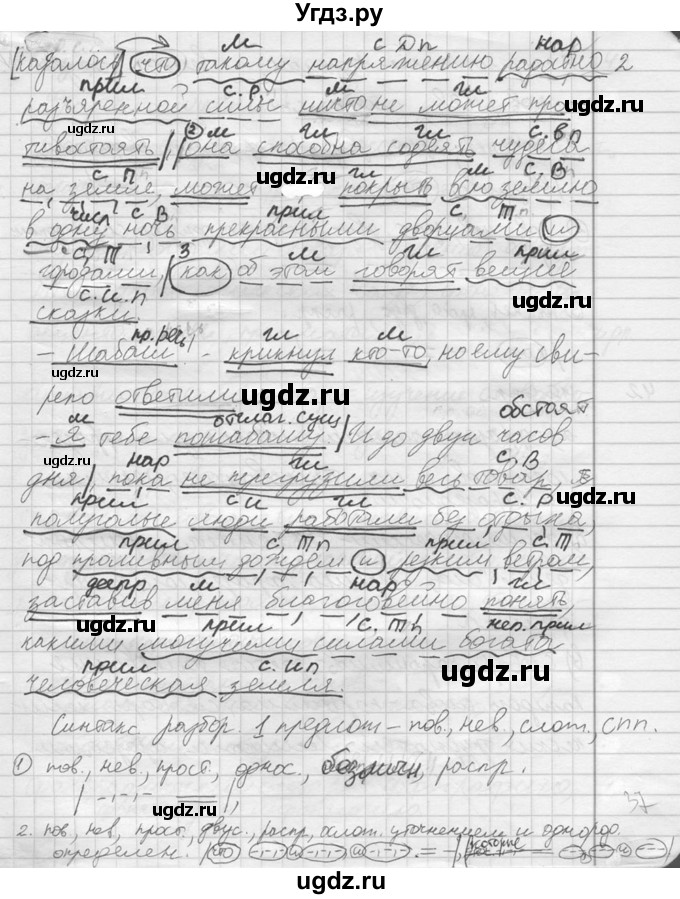 Угдз.ру
м с Дп нар
[казалось] что такому напряжению радостно 2
прил с.р. м гл
разъяренной силы ничто не может про
тивостоять // она способна содеять чудеса
2 м гл гл с.в
с П гл м с.В
на земле, может покрыть всю землю
числ с В прил с, Т
в одну ночь прекрасными дворцами и
с, Т 3 м гл прил
городами, / как об этом говорят вещие
с.и.п
сказки.
гл м
- Шабаш! - крикнул кто-то, но ему сви-
репо ответили
м отглаг. сущ обстоят
- Я тебе пошабашу / И до двух часов
нар гл с, В
дня / пока не перегрузили весь товар,
прил с И гл с. Р
полуголые люди работали без отдыха,
прил с, Тп прил с, Т
под проливным дождем и резким ветром,
деепр м нар гл
заставив меня благоговейно понять,
прил с. Тп
какими могучими силами богата
прил с. ип
человеческая земля.
Синтакс. разбор. 1 предлож - пов., нев., слож., СПП.
1 пов., нев., прост., однос., безличн, распр.
37
2. пов, нев, прост, двус., распр, ослож. уточнением и однород.
определен. (что
ugdz.ru